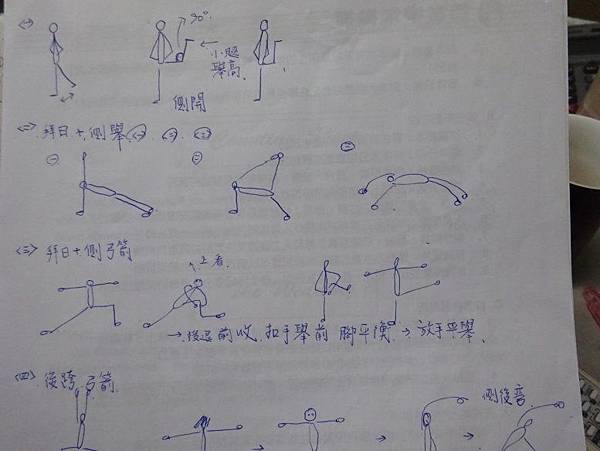 <一>
90°
小腿
舉高
側開
<二> 拜日+側舉 <一>、<二>、<三>
㊀ ㊁ ㊂
<三> 拜日+側弓箭
上看
→ 後忍前收 扣手舉前 腳平衡 → 放手平舉
<四> 後跨弓箭
側後彎